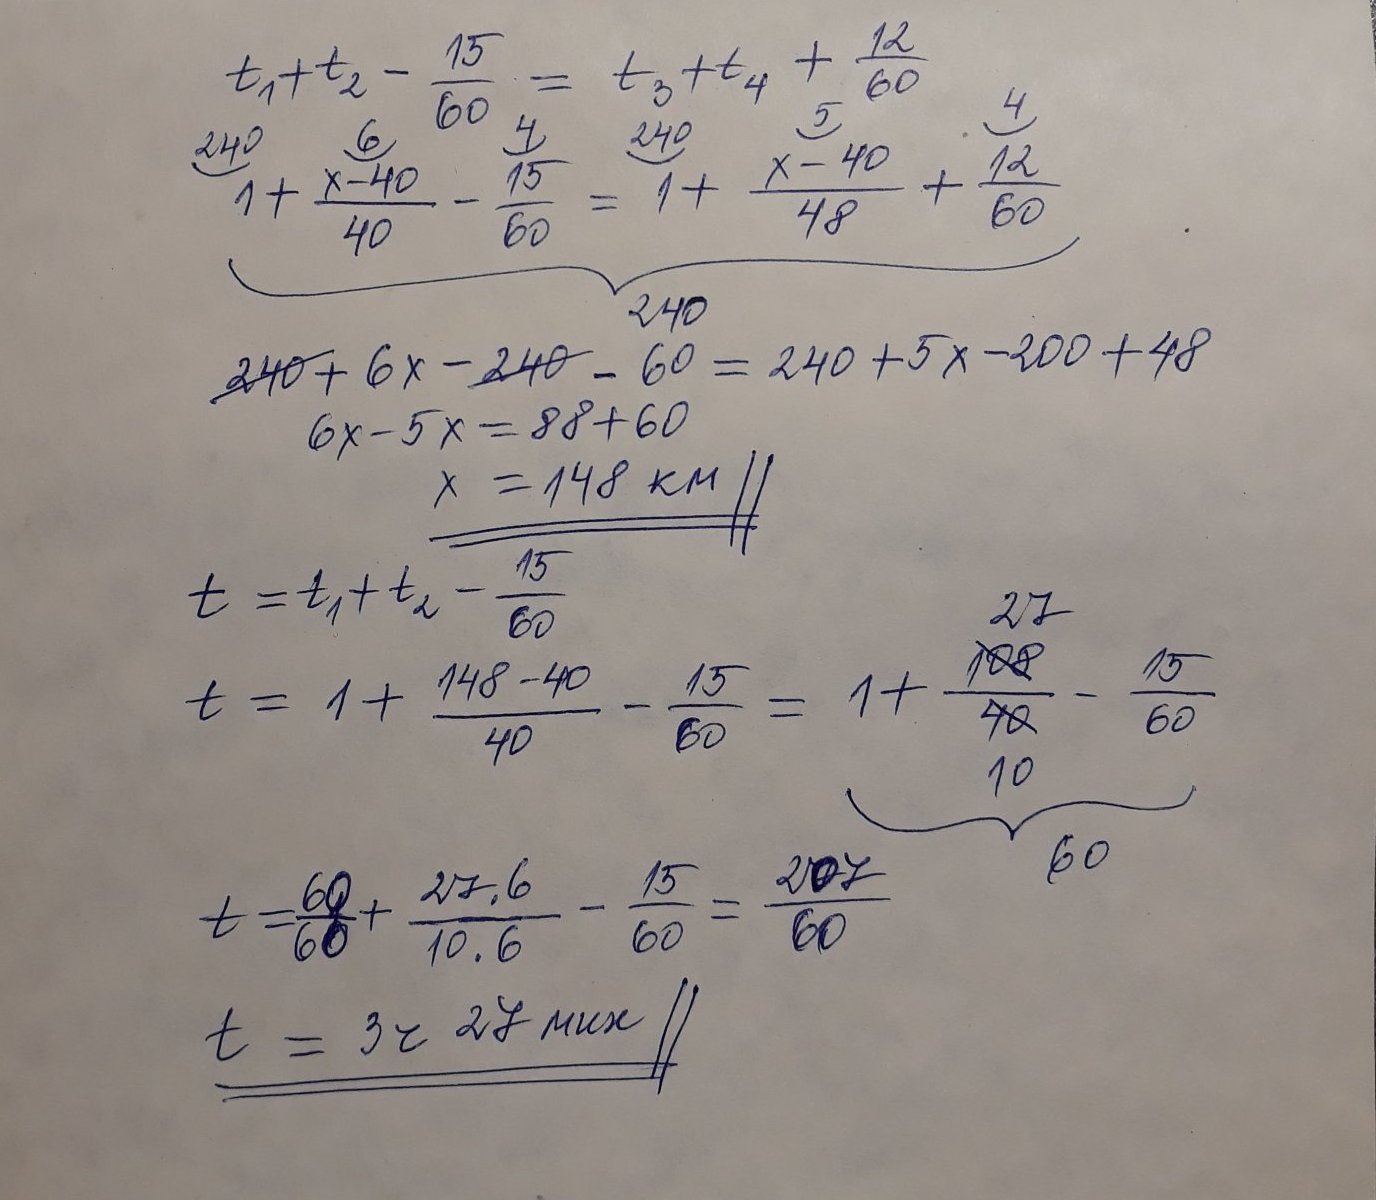 t₁+t₂ - 15/60 = t₃+t₄ + 12/60
240 6 4 240 5 4
1 + (x-40)/40 - 15/60 = 1 + (x-40)/48 + 12/60
240
240 + 6x - 240 - 60 = 240 + 5x - 200 + 48
6x - 5x = 88 + 60
x = 148 км
t = t₁+t₂ - 15/60
27
t = 1 + (148-40)/40 - 15/60 = 1 + 108/40 - 15/60
10
60
t = 60/60 + (27.6)/(10.6) - 15/60 = 207/60
t = 3ч 27 мин